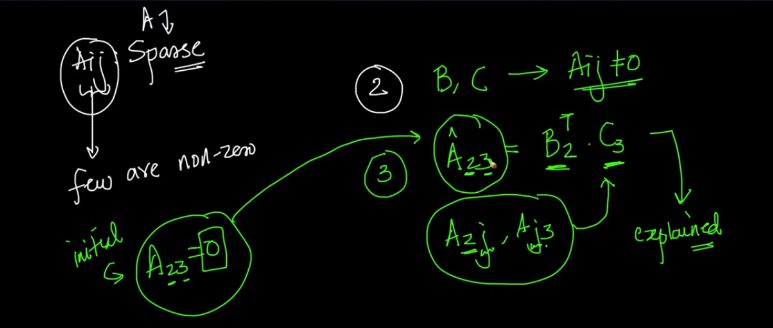 A
Aij Sparse
few are non-zero
initial
A23 = 0
2 B, C → Aij ≠ 0
3 Â23 = B2^T · C3
A2j, Aj3
explained